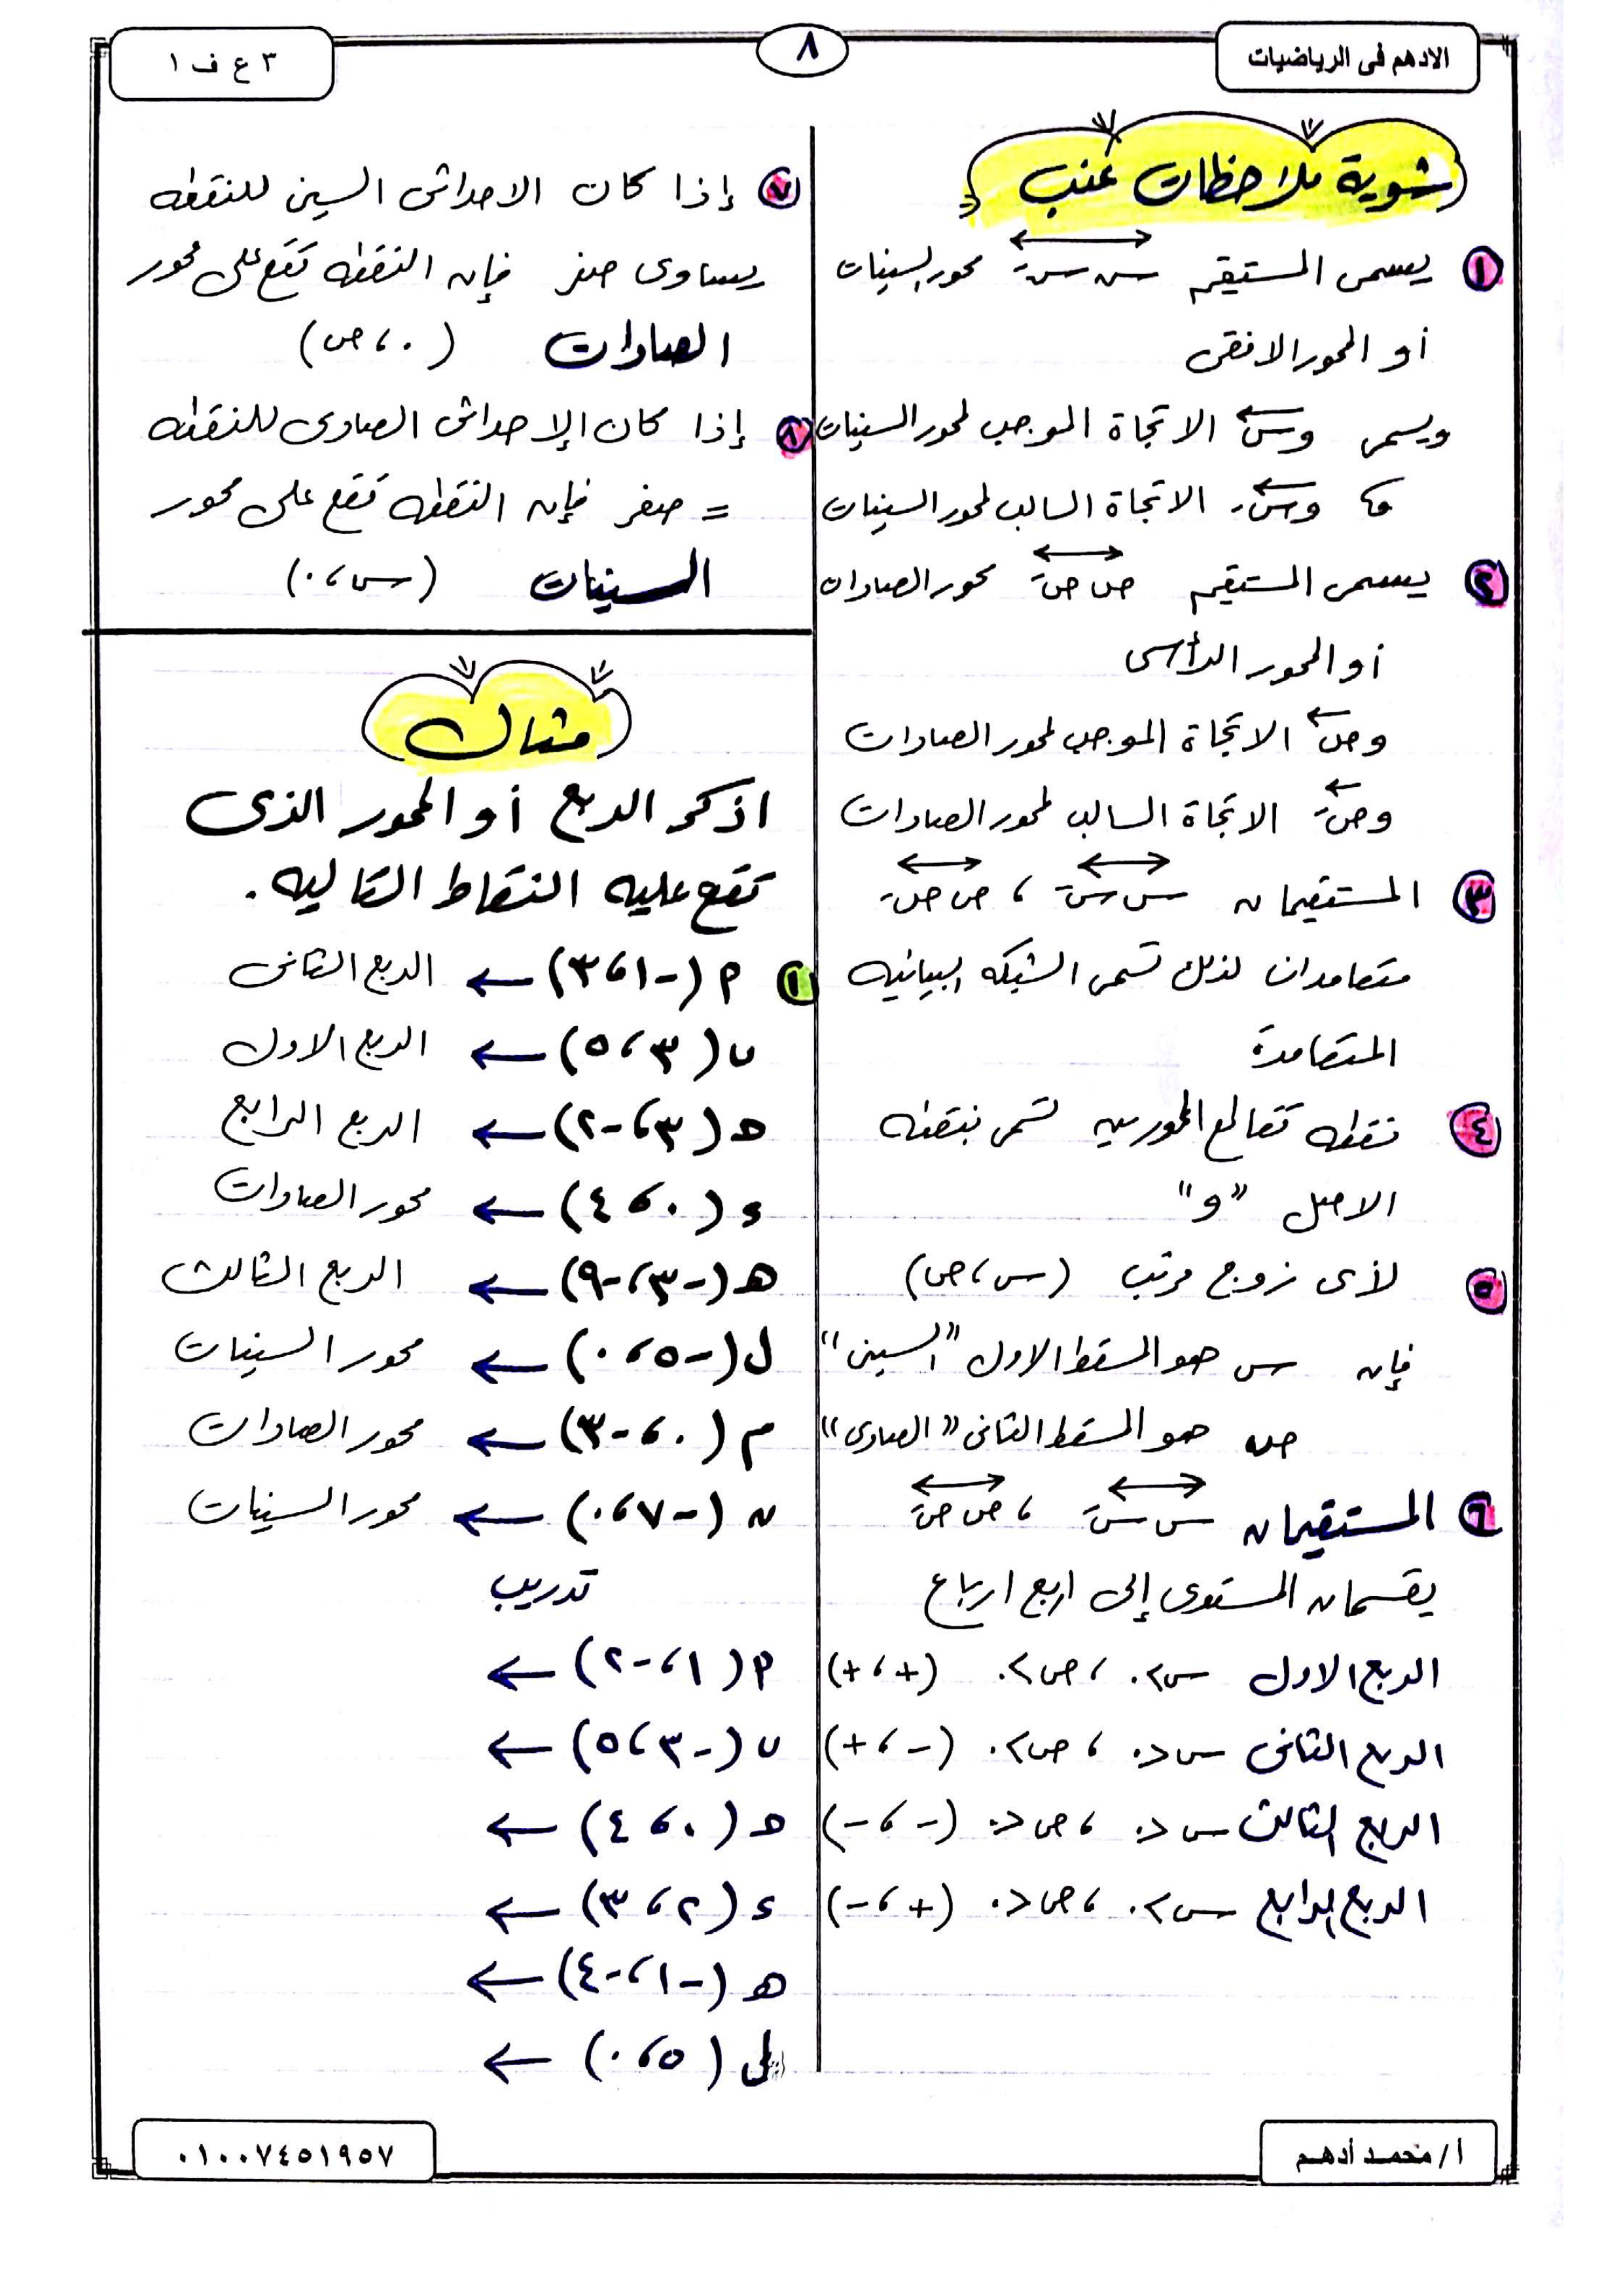 الادهم فى الرياضيات
٨
٣ ع ف ١
شوية ملاحظات عنب
١ يسمى المستقيم س سَ محور السينات
أو المحور الافقى
ويسمى وس الاتجاة الموجب لمحور السينات
، وسَ الاتجاة السالب لمحور السينات
٢ يسمى المستقيم ص صَ محور الصادات
أو المحور الرأسى
وص الاتجاة الموجب لمحور الصادات
وصَ الاتجاة السالب لمحور الصادات
٣ المستقيمان س سَ ، ص صَ
متعامدان لذلك تسمى الشبكه البيانيه
المتعامدة
٤ نقطه تقاطع المحورين تسمى بنقطه
الاصل "و"
٥ لأى زوج مرتب (س ، ص)
فإن س هو المسقط الاول "السينى"
ص هو المسقط الثانى "الصادى"
٦ المستقيمان س سَ ، ص صَ
يقسمان المستوى إلى اربع ارباع
الربع الاول س > ٠ ، ص > ٠ (+ ، +)
الربع الثانى س < ٠ ، ص > ٠ (- ، +)
الربع الثالث س < ٠ ، ص < ٠ (- ، -)
الربع الرابع س > ٠ ، ص < ٠ (+ ، -)
٧ إذا كان الاحداثى السينى للنقطه
يساوى صفر فإن النقطه تقع على محور
الصادات (٠ ، ص)
٨ إذا كان الإحداثى الصادى للنقطه
= صفر فإن النقطه تقع على محور
السينات (س ، ٠)
مثال
اذكر الربع أو المحور الذى
تقع عليه النقاط التاليه .
١ م (-١ ، ٣) ← الربع الثانى
ب (٣ ، ٥) ← الربع الاول
ح (٣ ، -٢) ← الربع الرابع
ء (٠ ، ٤) ← محور الصادات
ه (-٣ ، -٩) ← الربع الثالث
ل (-٥ ، ٠) ← محور السينات
م (٠ ، -٣) ← محور الصادات
ن (-٧ ، ٠) ← محور السينات
تدريب
م (١ ، -٢) ←
ب (-٣ ، ٥) ←
ح (٠ ، ٤) ←
ء (٢ ، ٣) ←
ه (-١ ، -٤) ←
(٥ ، ٠) ←
أ / محمد أدهم
٠١٠٠٧٤٥١٩٥٧